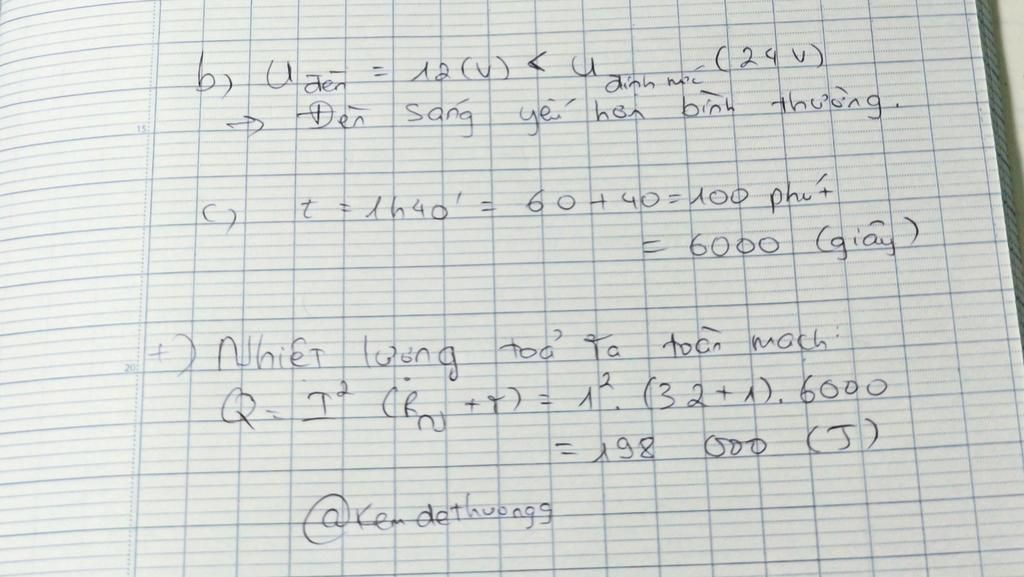 b) U đèn = 12 (V) < U định mức (24 V)
→ Đèn sáng yếu hơn bình thường.
c) t = 1h40' = 60 + 40 = 100 phút
= 6000 (giây)
+) Nhiệt lượng toả ra toàn mạch:
Q = I² (R_N + r) = 1². (32 + 1). 6000
= 198 000 (J)
@kemdethuongg
15
20